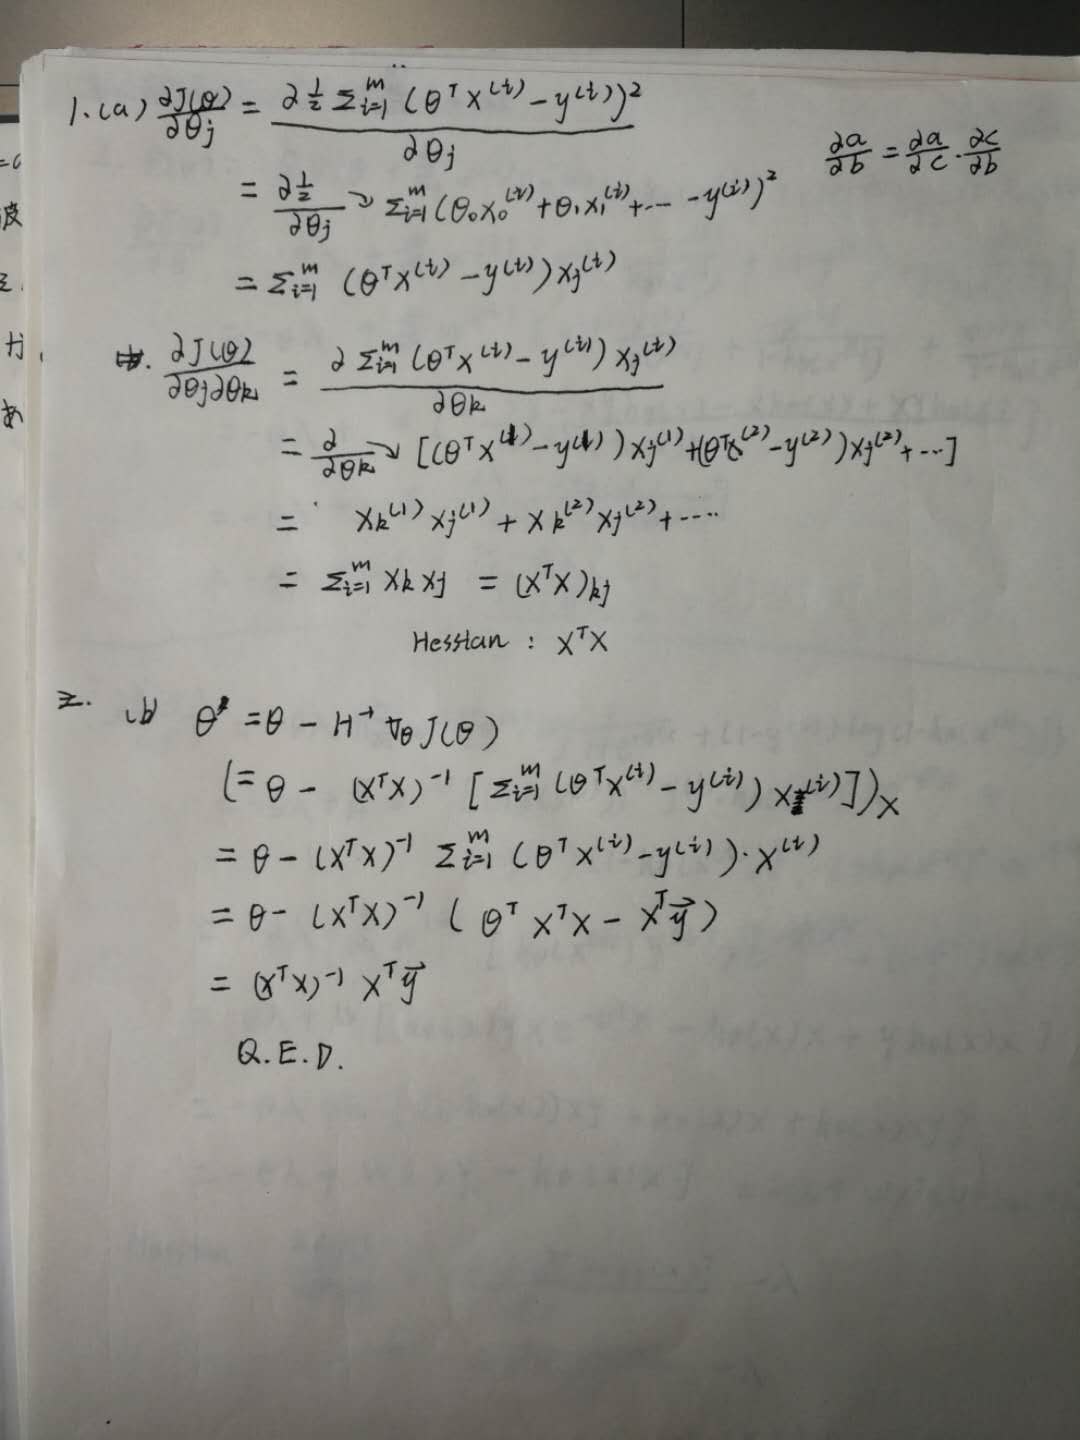 1. (a) ∂J(θ)/∂θj = ∂ ½ Σᵢ₌₁ᵐ (θᵀx⁽ⁱ⁾ − y⁽ⁱ⁾)² / ∂θj
∂a/∂b = ∂a/∂c · ∂c/∂b
= ∂½/∂θj ↘ Σᵢ₌₁ᵐ (θ₀x₀⁽ⁱ⁾ + θ₁x₁⁽ⁱ⁾ + ··· − y⁽ⁱ⁾)²
= Σᵢ₌₁ᵐ (θᵀx⁽ⁱ⁾ − y⁽ⁱ⁾) xj⁽ⁱ⁾
∂J(θ)/∂θj∂θk = ∂ Σᵢ₌₁ᵐ (θᵀx⁽ⁱ⁾ − y⁽ⁱ⁾) xj⁽ⁱ⁾ / ∂θk
= ∂/∂θk ↘ [(θᵀx⁽¹⁾ − y⁽¹⁾) xj⁽¹⁾ + (θᵀx⁽²⁾ − y⁽²⁾) xj⁽²⁾ + ···]
= xk⁽¹⁾ xj⁽¹⁾ + xk⁽²⁾ xj⁽²⁾ + ····
= Σᵢ₌₁ᵐ xk xj = (XᵀX)kj
Hessian : XᵀX
2. (b) θ = θ − H⁻¹ ∇θ J(θ)
(= θ − (XᵀX)⁻¹ [Σᵢ₌₁ᵐ (θᵀx⁽ⁱ⁾ − y⁽ⁱ⁾) x⁽ⁱ⁾])×
= θ − (XᵀX)⁻¹ Σᵢ₌₁ᵐ (θᵀx⁽ⁱ⁾ − y⁽ⁱ⁾) · x⁽ⁱ⁾
= θ − (XᵀX)⁻¹ (θᵀ XᵀX − Xᵀy⃗)
= (XᵀX)⁻¹ Xᵀy⃗
Q.E.D.